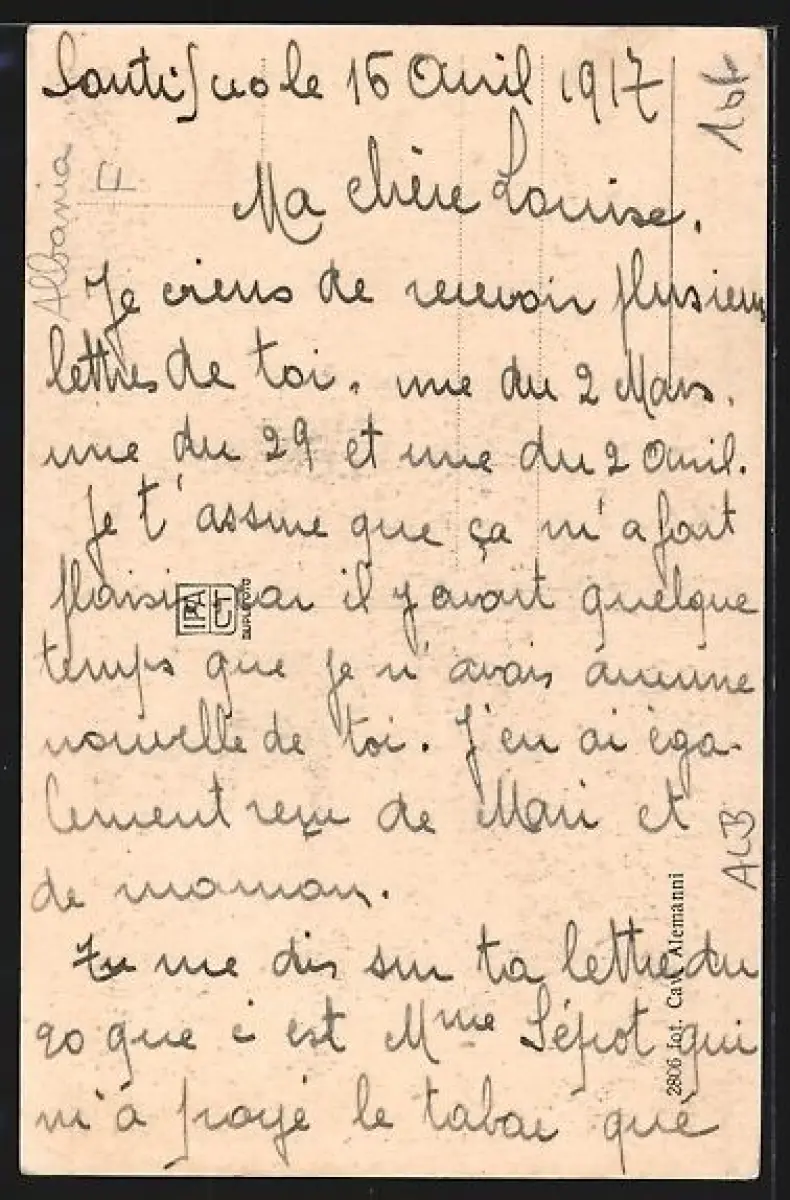 le 16 Avril 1917
Ma chère Louise.
Je viens de recevoir plusieurs
lettres de toi. une du 2 Mars.
une du 29 et une du 2 Avril.
Je t'assure que ça m'a fait
plaisir car il y avait quelque
temps que je n'avais aucune
nouvelle de toi. J'en ai éga-
lement reçu de Mari et
de maman.
Tu me dis sur ta lettre du
que c'est Mme qui
m'a payé le tabac que
Albania
F
ALB
IPA CT
DUPLEFOTO
2806 Fot. Cav. Alemanni